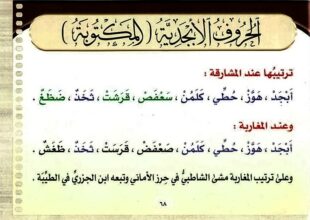 الحُروفُ الأَبْجَدِيَّة (المَكْتُوبَة)
ترتيبُها عند المشارقة :
أَبْجَدْ ، هَوَّزْ ، حُطِّي ، كَلَمُنْ ، سَعْفَصْ ، قَرَشَتْ ، ثَخَذْ ، ضَظَغٌ .
وعند المغاربة :
أَبْجَدْ ، هَوَّزْ ، حُطِّي ، كَلَمُنْ ، صَعْفَضْ ، قَرَسَتْ ، ثَخَذْ ، ظَغَشْ .
وعلى ترتيب المغاربة مشىٰ الشاطبيُّ في حِرز الأماني وتبعه ابن الجزريِّ في الطيِّبَة .
٦٨